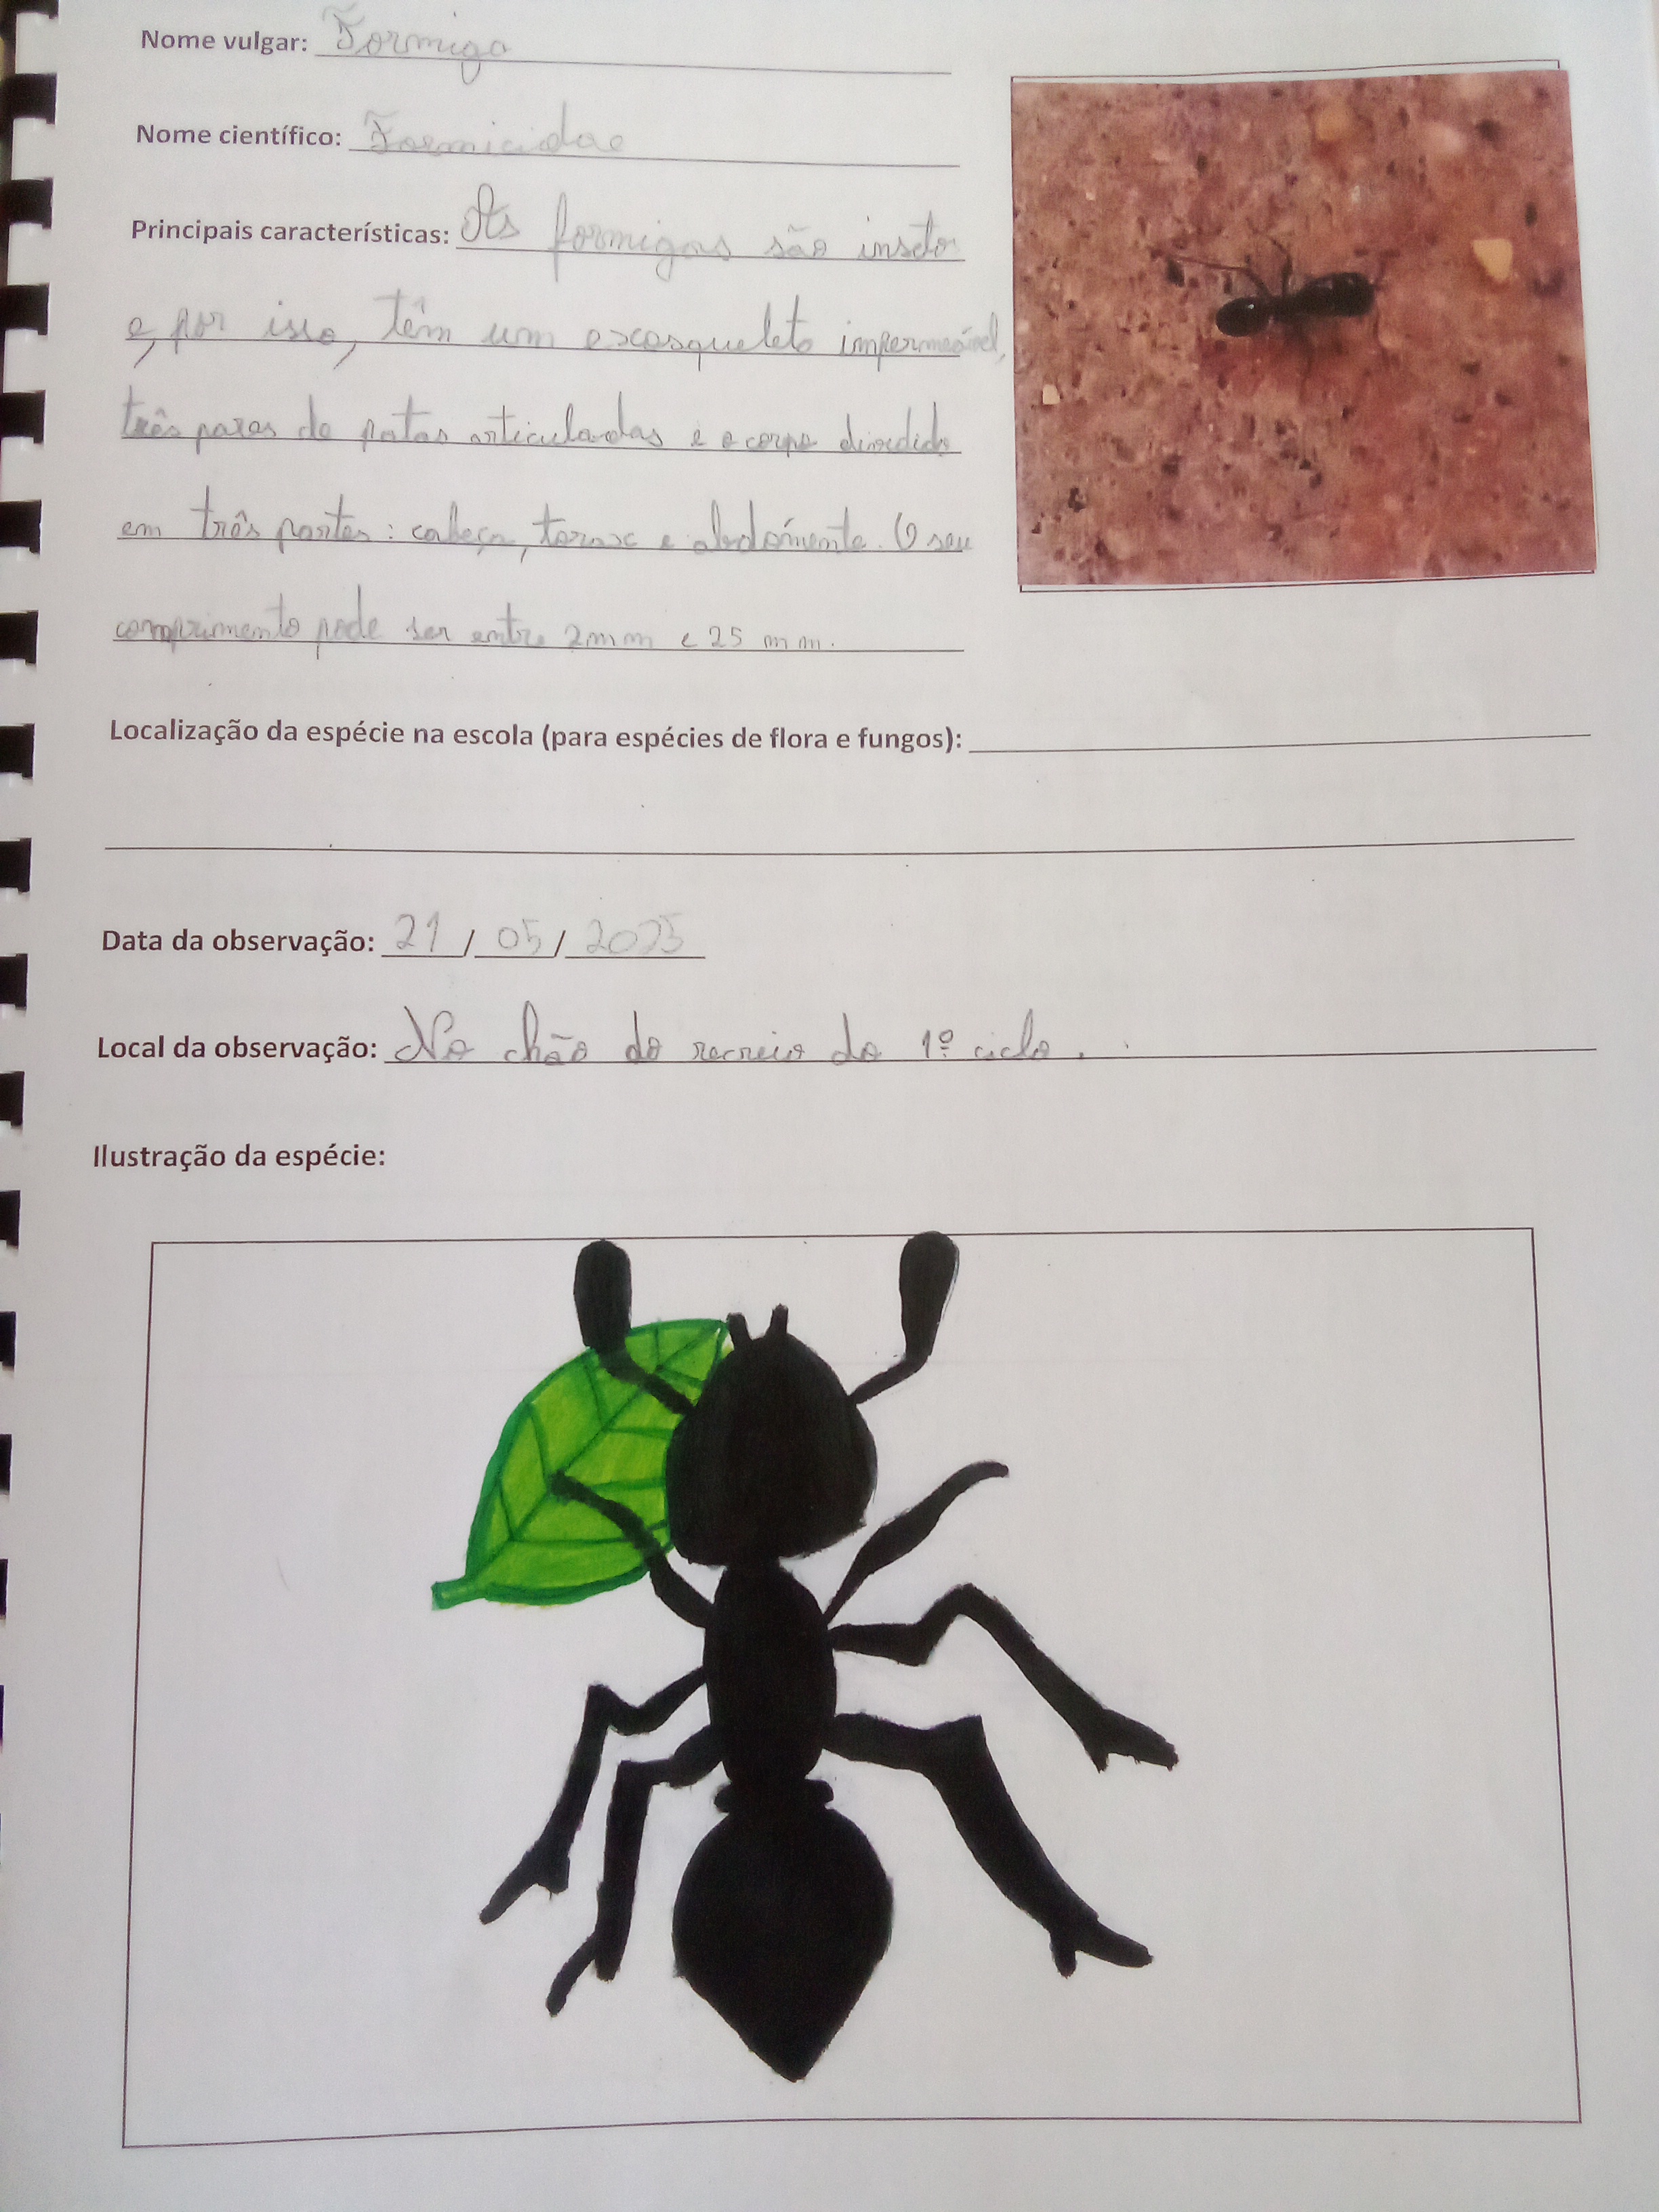 Nome vulgar: Formiga
Nome científico: Formicidae
Principais características: As formigas são inseto
e, por isso, têm um exosqueleto impermeável,
três pares de patas articuladas e o corpo dividido
em três partes: cabeça, torax e abdómente. O seu
comprimento pode ser entre 2mm e 25 mm.
Localização da espécie na escola (para espécies de flora e fungos):
Data da observação: 21/05/2025
Local da observação: No chão do recreio do 1º ciclo.
Ilustração da espécie: